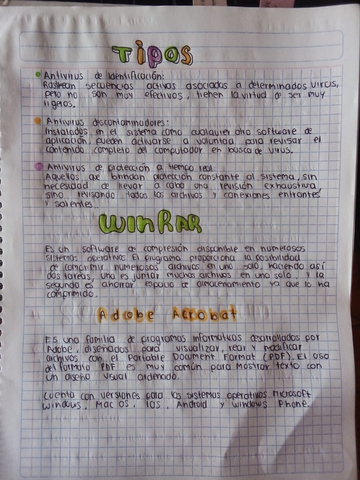 TiPOS
Antivirus de Identificación:
Rastrean secuencias activas asociadas a determinados virus,
pero no son muy efectivos, tienen la virtud de ser muy
ligeros.
Antivirus descontaminadores:
Instalados en el sistema como cualquier otro software de
aplicación, pueden activarse a voluntad para revisar el
contenido completo del computador en busca de virus.
Antivirus de protección a tiempo real:
Aquellos que brindan protección constante al sistema, sin
necesidad de llevar a cabo una revisión exhaustiva,
sino revisando todos los archivos y conexiones entrantes
y salientes.
WinRAR
Es un software de compresión disponible en numerosos
sistemas operativos. El programa proporciona la posibilidad
de comprimir numerosos archivos en uno solo, haciendo así
dos tareas, uno es juntar muchos archivos en uno solo y la
segunda es ahorrar espacio de almacenamiento ya que lo ha
comprimido.
Adobe Acrobat
Es una familia de programas informáticos desarrollados por
Adobe, diseñados para visualizar, crear y modificar
archivos con el Portable Document Format (PDF). El uso
del formato PDF es muy común para mostrar texto con
un diseño visual ordenado.
Cuenta con versiones para los sistemas operativos Microsoft
Windows, Mac OS, IOS, Android y Windows Phone.